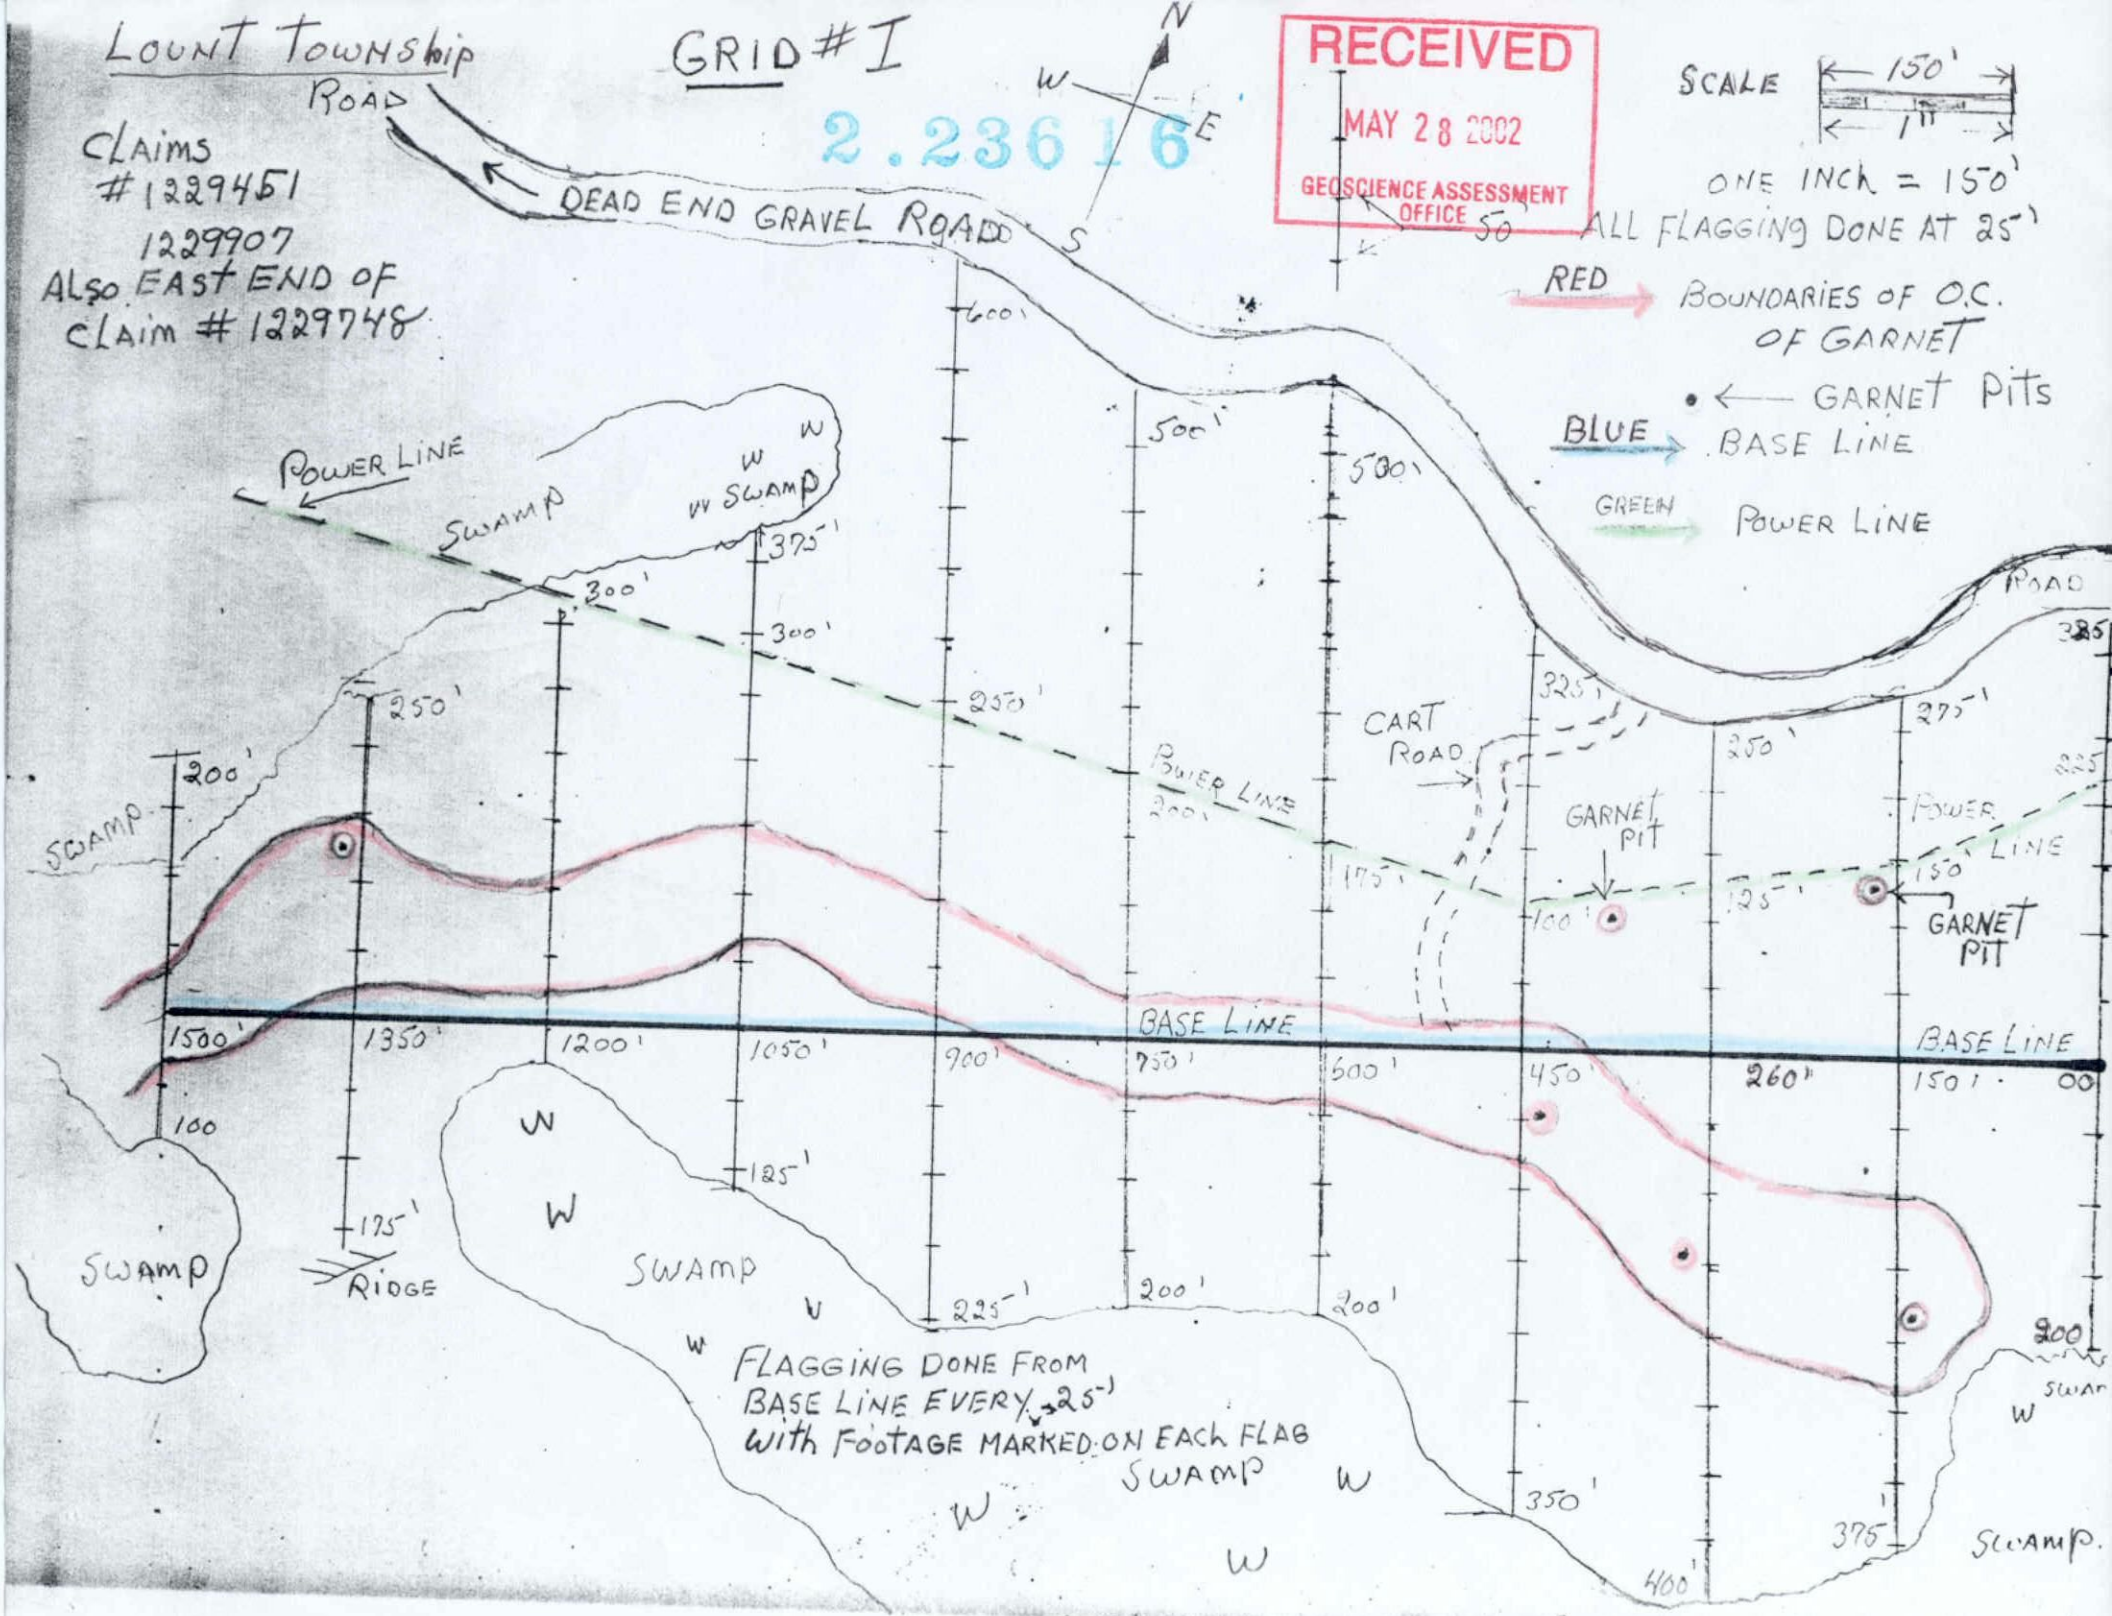 LOUNT TOWNShip
GRID # I
N
W
E
S
2.23616
RECEIVED
MAY 28 2002
GEOSCIENCE ASSESSMENT
OFFICE
50'
SCALE
150'
1"
ONE INCh = 150'
ALL FLAGGING DONE AT 25'
RED
BOUNDARIES OF O.C.
OF GARNET
GARNET PiTS
BLUE
BASE LINE
GREEN
POWER LINE
ROAD
CLAIMS
# 1229451
1229907
ALSO EAST END OF
CLAIM # 1229748
DEAD END GRAVEL ROAD
600'
500'
500'
ROAD
325
POWER LINE
SWAMP
W
W
W SWAMP
375'
300'
300'
250'
250'
200'
SWAMP
POWER LINE
200'
175'
CART
ROAD
325'
GARNET
PIT
100'
250'
125'
275'
225
POWER
LINE
150'
GARNET
PIT
BASE LINE
BASE LINE
1500'
1350'
1200'
1050'
900'
750'
600'
450'
260"
150'
00
100
175'
RIDGE
SWAMP
W
W
125'
SWAMP
W
W
225'
200'
200'
FLAGGING DONE FROM
BASE LINE EVERY 25'
With FOOTAGE MARKED ON EACH FLAG
SWAMP
W
W
W
350'
400'
375'
200
SWAM
W
SWAMP.